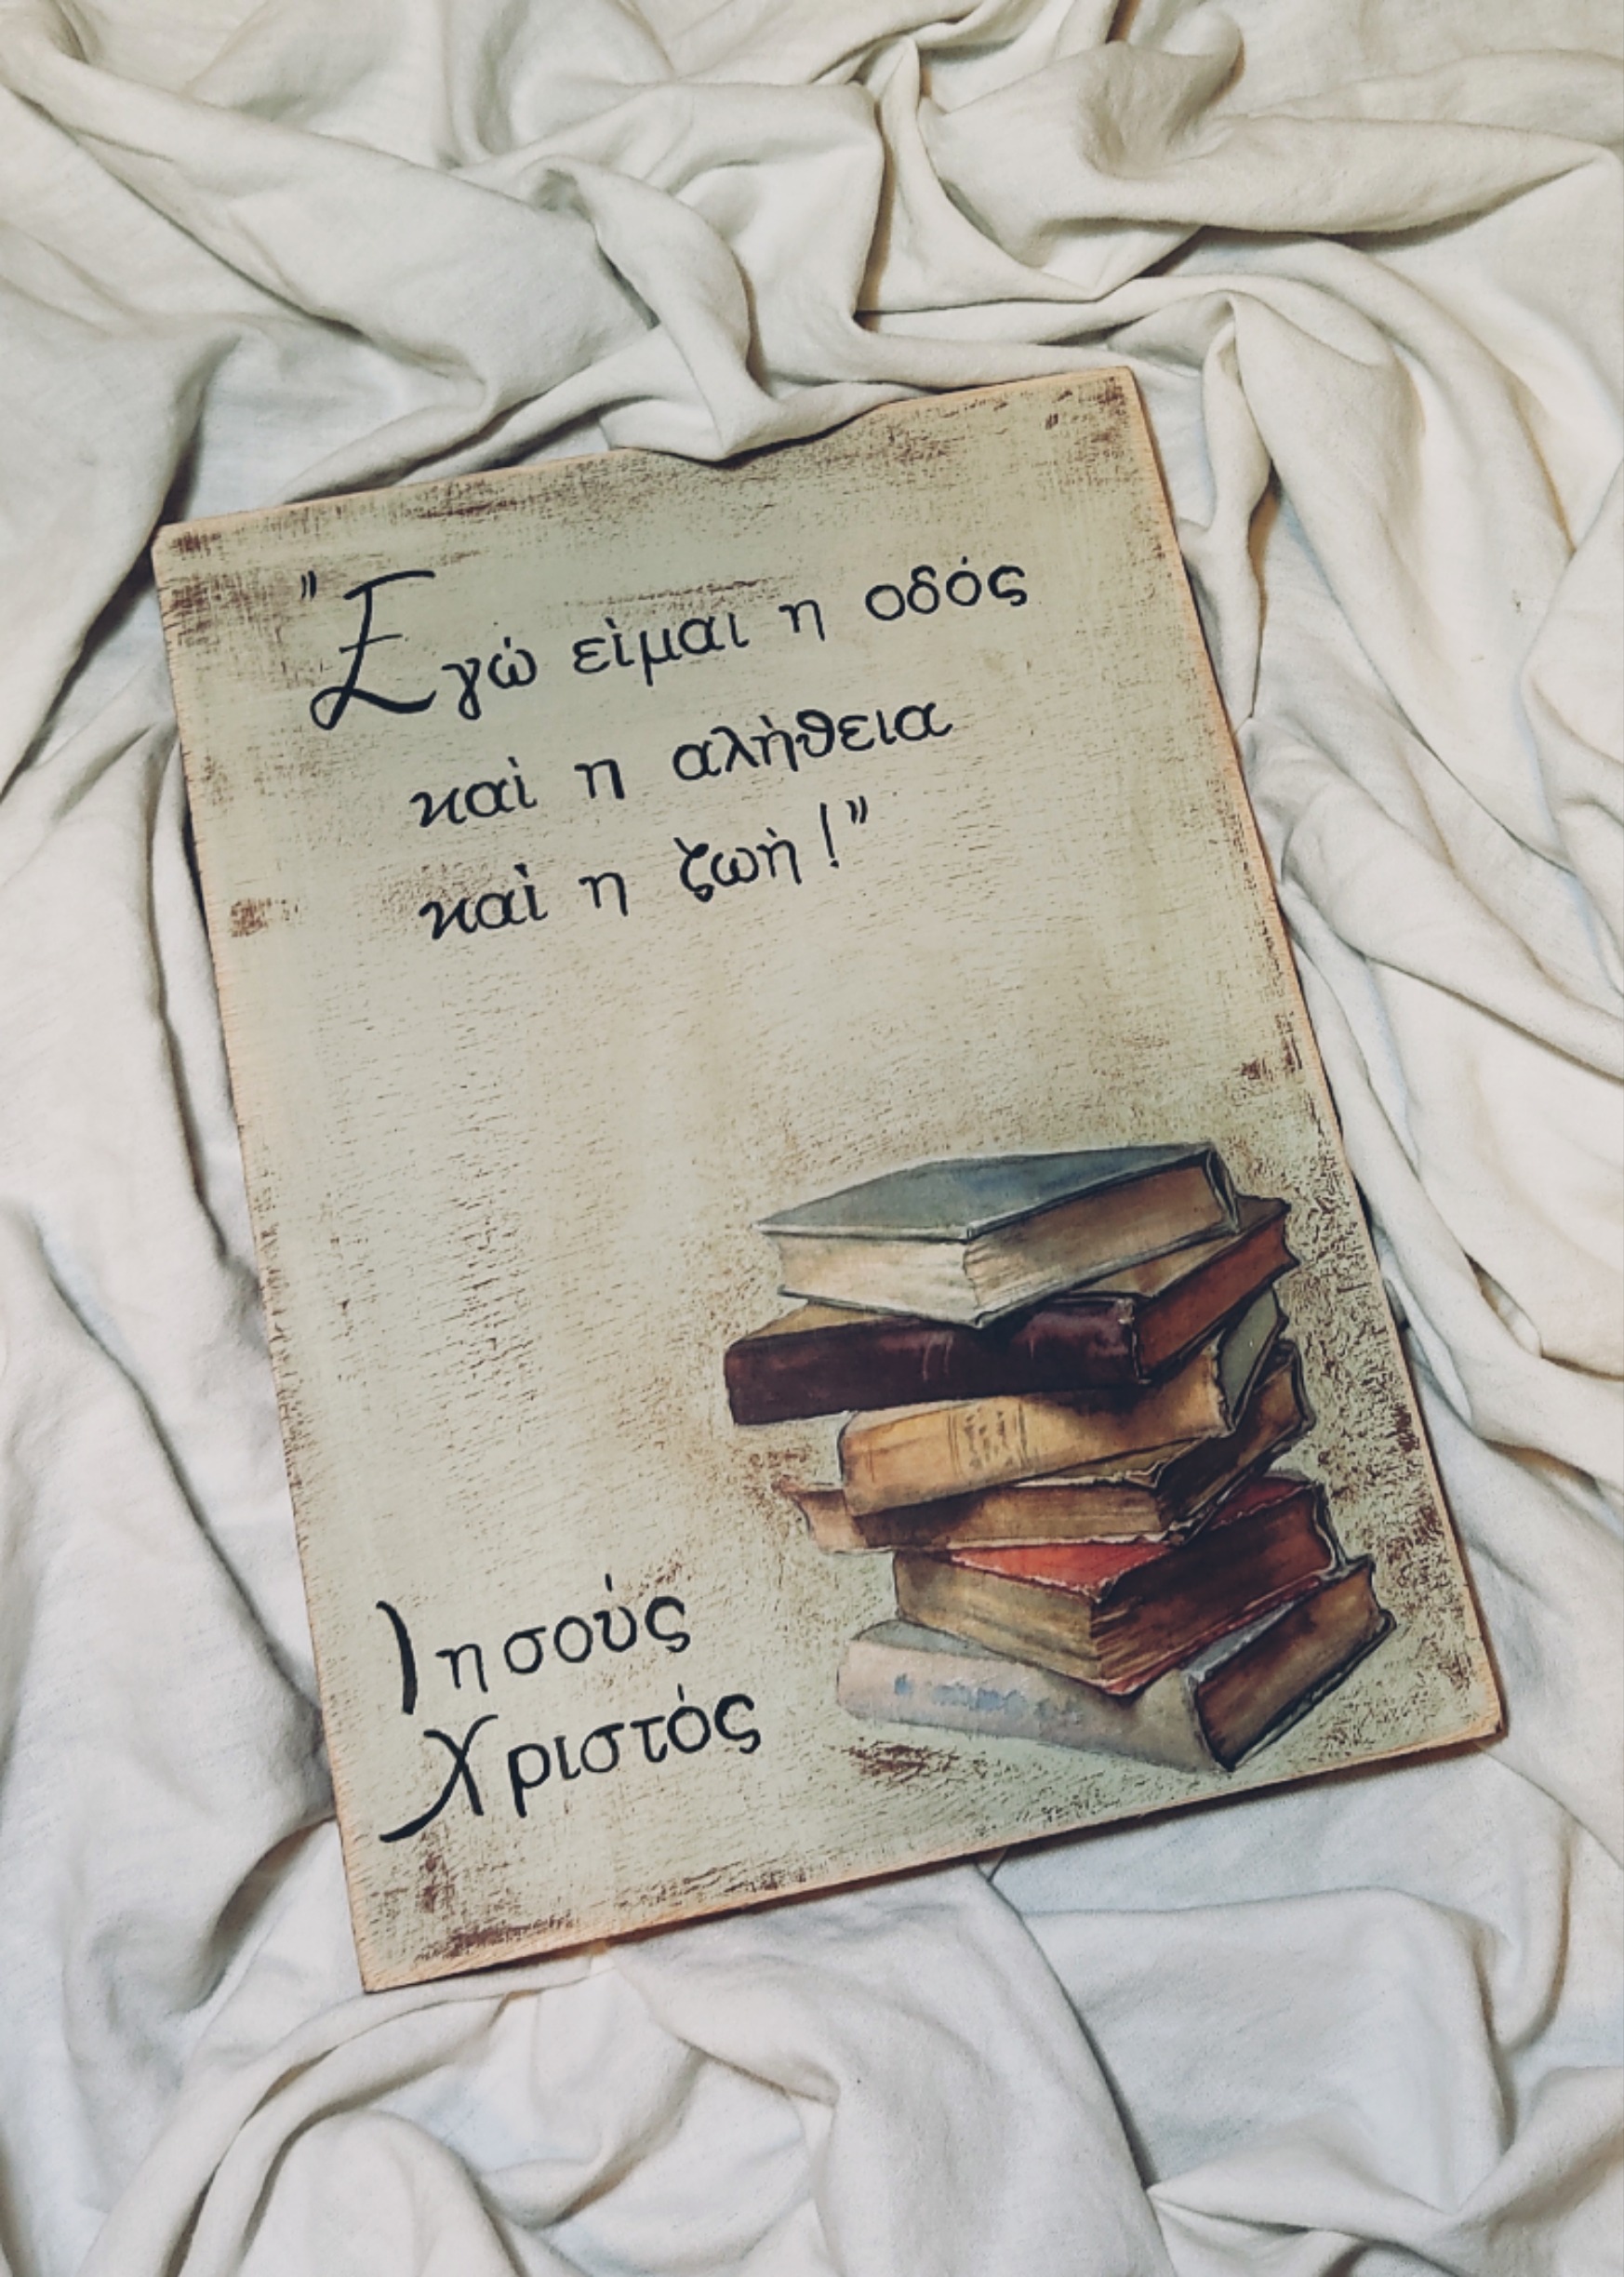 "Εγώ είμαι η οδός
καί η αλήθεια
καί η ζωή!"
Ιησούς
Χριστός